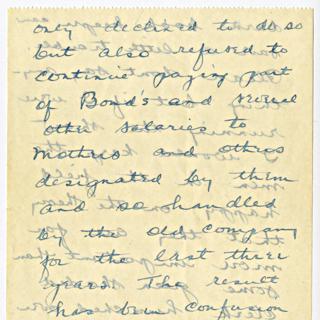 only declined to do so
but also refused to
continue paying part
of Bond's and several
other salaries to
mothers and others
designated by them
and so handled
by the old company
for the last three
years. The result
has been confusion